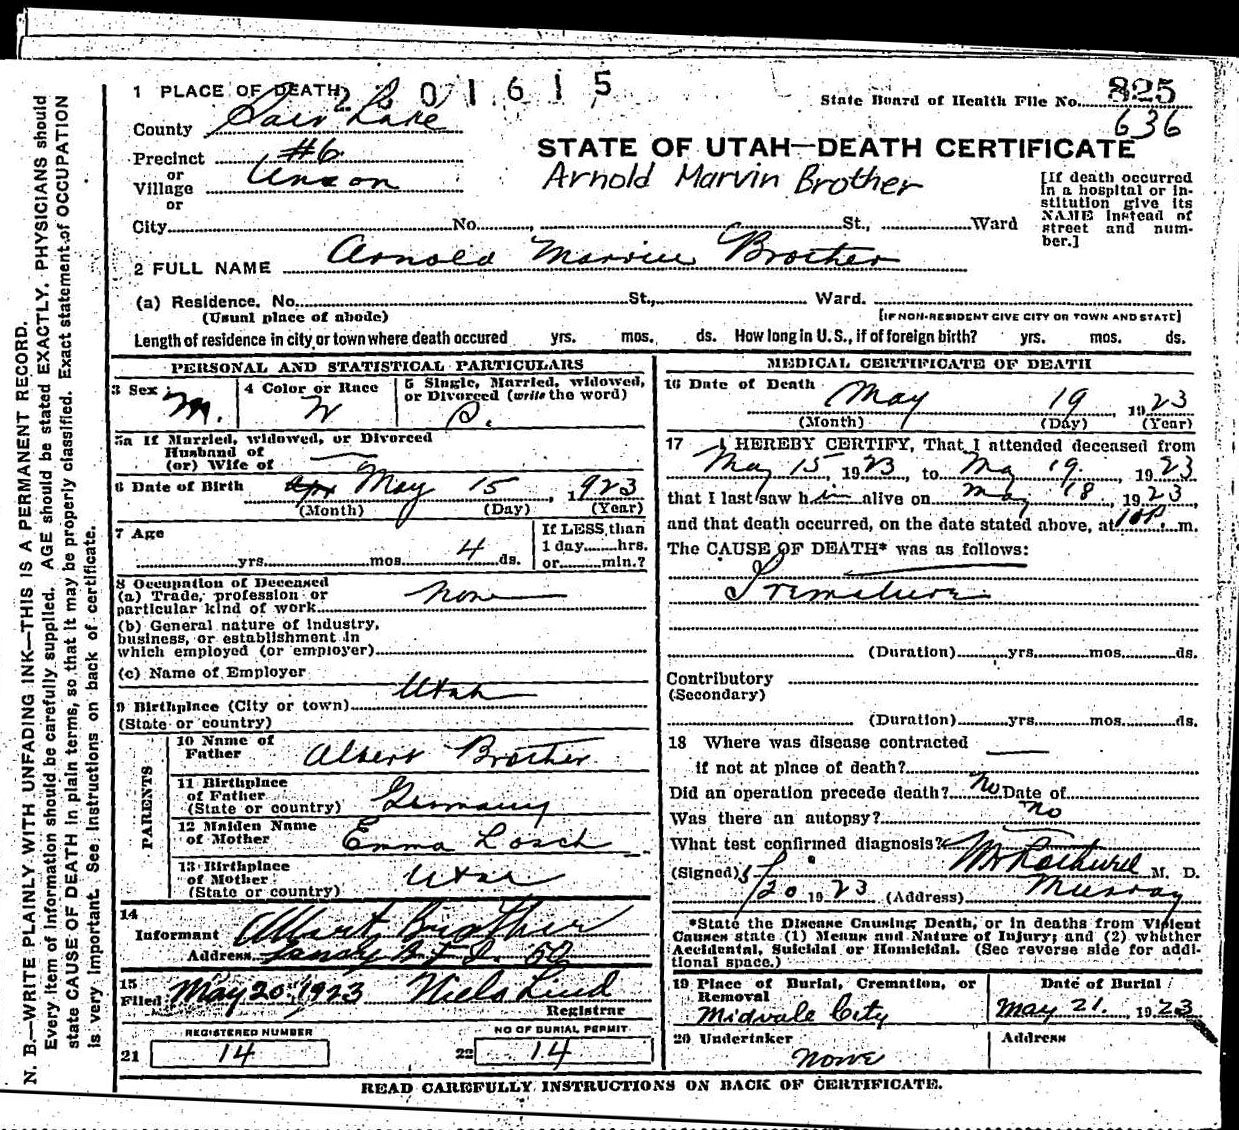 N. B.—WRITE PLAINLY WITH UNFADING INK—THIS IS A PERMANENT RECORD.
Every item of information should be carefully supplied. AGE should be stated EXACTLY. PHYSICIANS should
state CAUSE OF DEATH in plain terms, so that it may be properly classified. Exact statement of OCCUPATION
is very important. See instructions on back of certificate.
1 PLACE OF DEATH 2 0 1 6 1 5
State Board of Health File No. 825
636
County Salt Lake
Precinct #6
or
Village Union
or
STATE OF UTAH—DEATH CERTIFICATE
Arnold Marvin Brother
[If death occurred
in a hospital or in-
stitution give its
NAME instead of
street and num-
ber.]
City No. St., Ward
2 FULL NAME Arnold Marvin Brother
(a) Residence. No. St., Ward.
(Usual place of abode) [IF NON-RESIDENT GIVE CITY OR TOWN AND STATE]
Length of residence in city or town where death occured yrs. mos. ds. How long in U. S., if of foreign birth? yrs. mos. ds.
PERSONAL AND STATISTICAL PARTICULARS
3 Sex M.
4 Color or Race W
5 Single, Married, widowed,
or Divorced (write the word) S.
5a If Married, widowed, or Divorced
Husband of
(or) Wife of
6 Date of Birth Apr May 15, 1923
(Month) (Day) (Year)
7 Age
yrs. mos. 4 ds.
If LESS than
1 day hrs.
or min.?
8 Occupation of Deceased
(a) Trade, profession or
particular kind of work None
(b) General nature of Industry,
business, or establishment in
which employed (or employer)
(c) Name of Employer
9 Birthplace (City or town) Utah
(State or country)
PARENTS
10 Name of
Father Albert Brother
11 Birthplace
of Father Germany
(State or country)
12 Maiden Name
of Mother Emma Losch
13 Birthplace
of Mother Utah
(State or country)
14
Informant Albert Brother
Address Sandy
15
Filed May 20, 1923 Niels Lind
Registrar
REGISTERED NUMBER
21 14
NO OF BURIAL PERMIT
22 14
MEDICAL CERTIFICATE OF DEATH
16 Date of Death May 19, 1923
(Month) (Day) (Year)
17 I HEREBY CERTIFY, That I attended deceased from
May 15, 1923, to May 19, 1923
that I last saw him alive on May 18, 1923,
and that death occurred, on the date stated above, at 10 P. m.
The CAUSE OF DEATH* was as follows:
Premature
(Duration) yrs. mos. ds.
Contributory
(Secondary)
(Duration) yrs. mos. ds.
18 Where was disease contracted
if not at place of death?
Did an operation precede death? No Date of
Was there an autopsy? no
What test confirmed diagnosis?
(Signed) M. D.
5/20 1923 (Address) Murray
*State the Disease Causing Death, or in deaths from Violent
Causes state (1) Means and Nature of Injury; and (2) whether
Accidental, Suicidal or Homicidal. (See reverse side for addi-
tional space.)
19 Place of Burial, Cremation, or
Removal
Midvale City
Date of Burial
May 21. 1923
20 Undertaker
None
Address
READ CAREFULLY INSTRUCTIONS ON BACK OF CERTIFICATE.